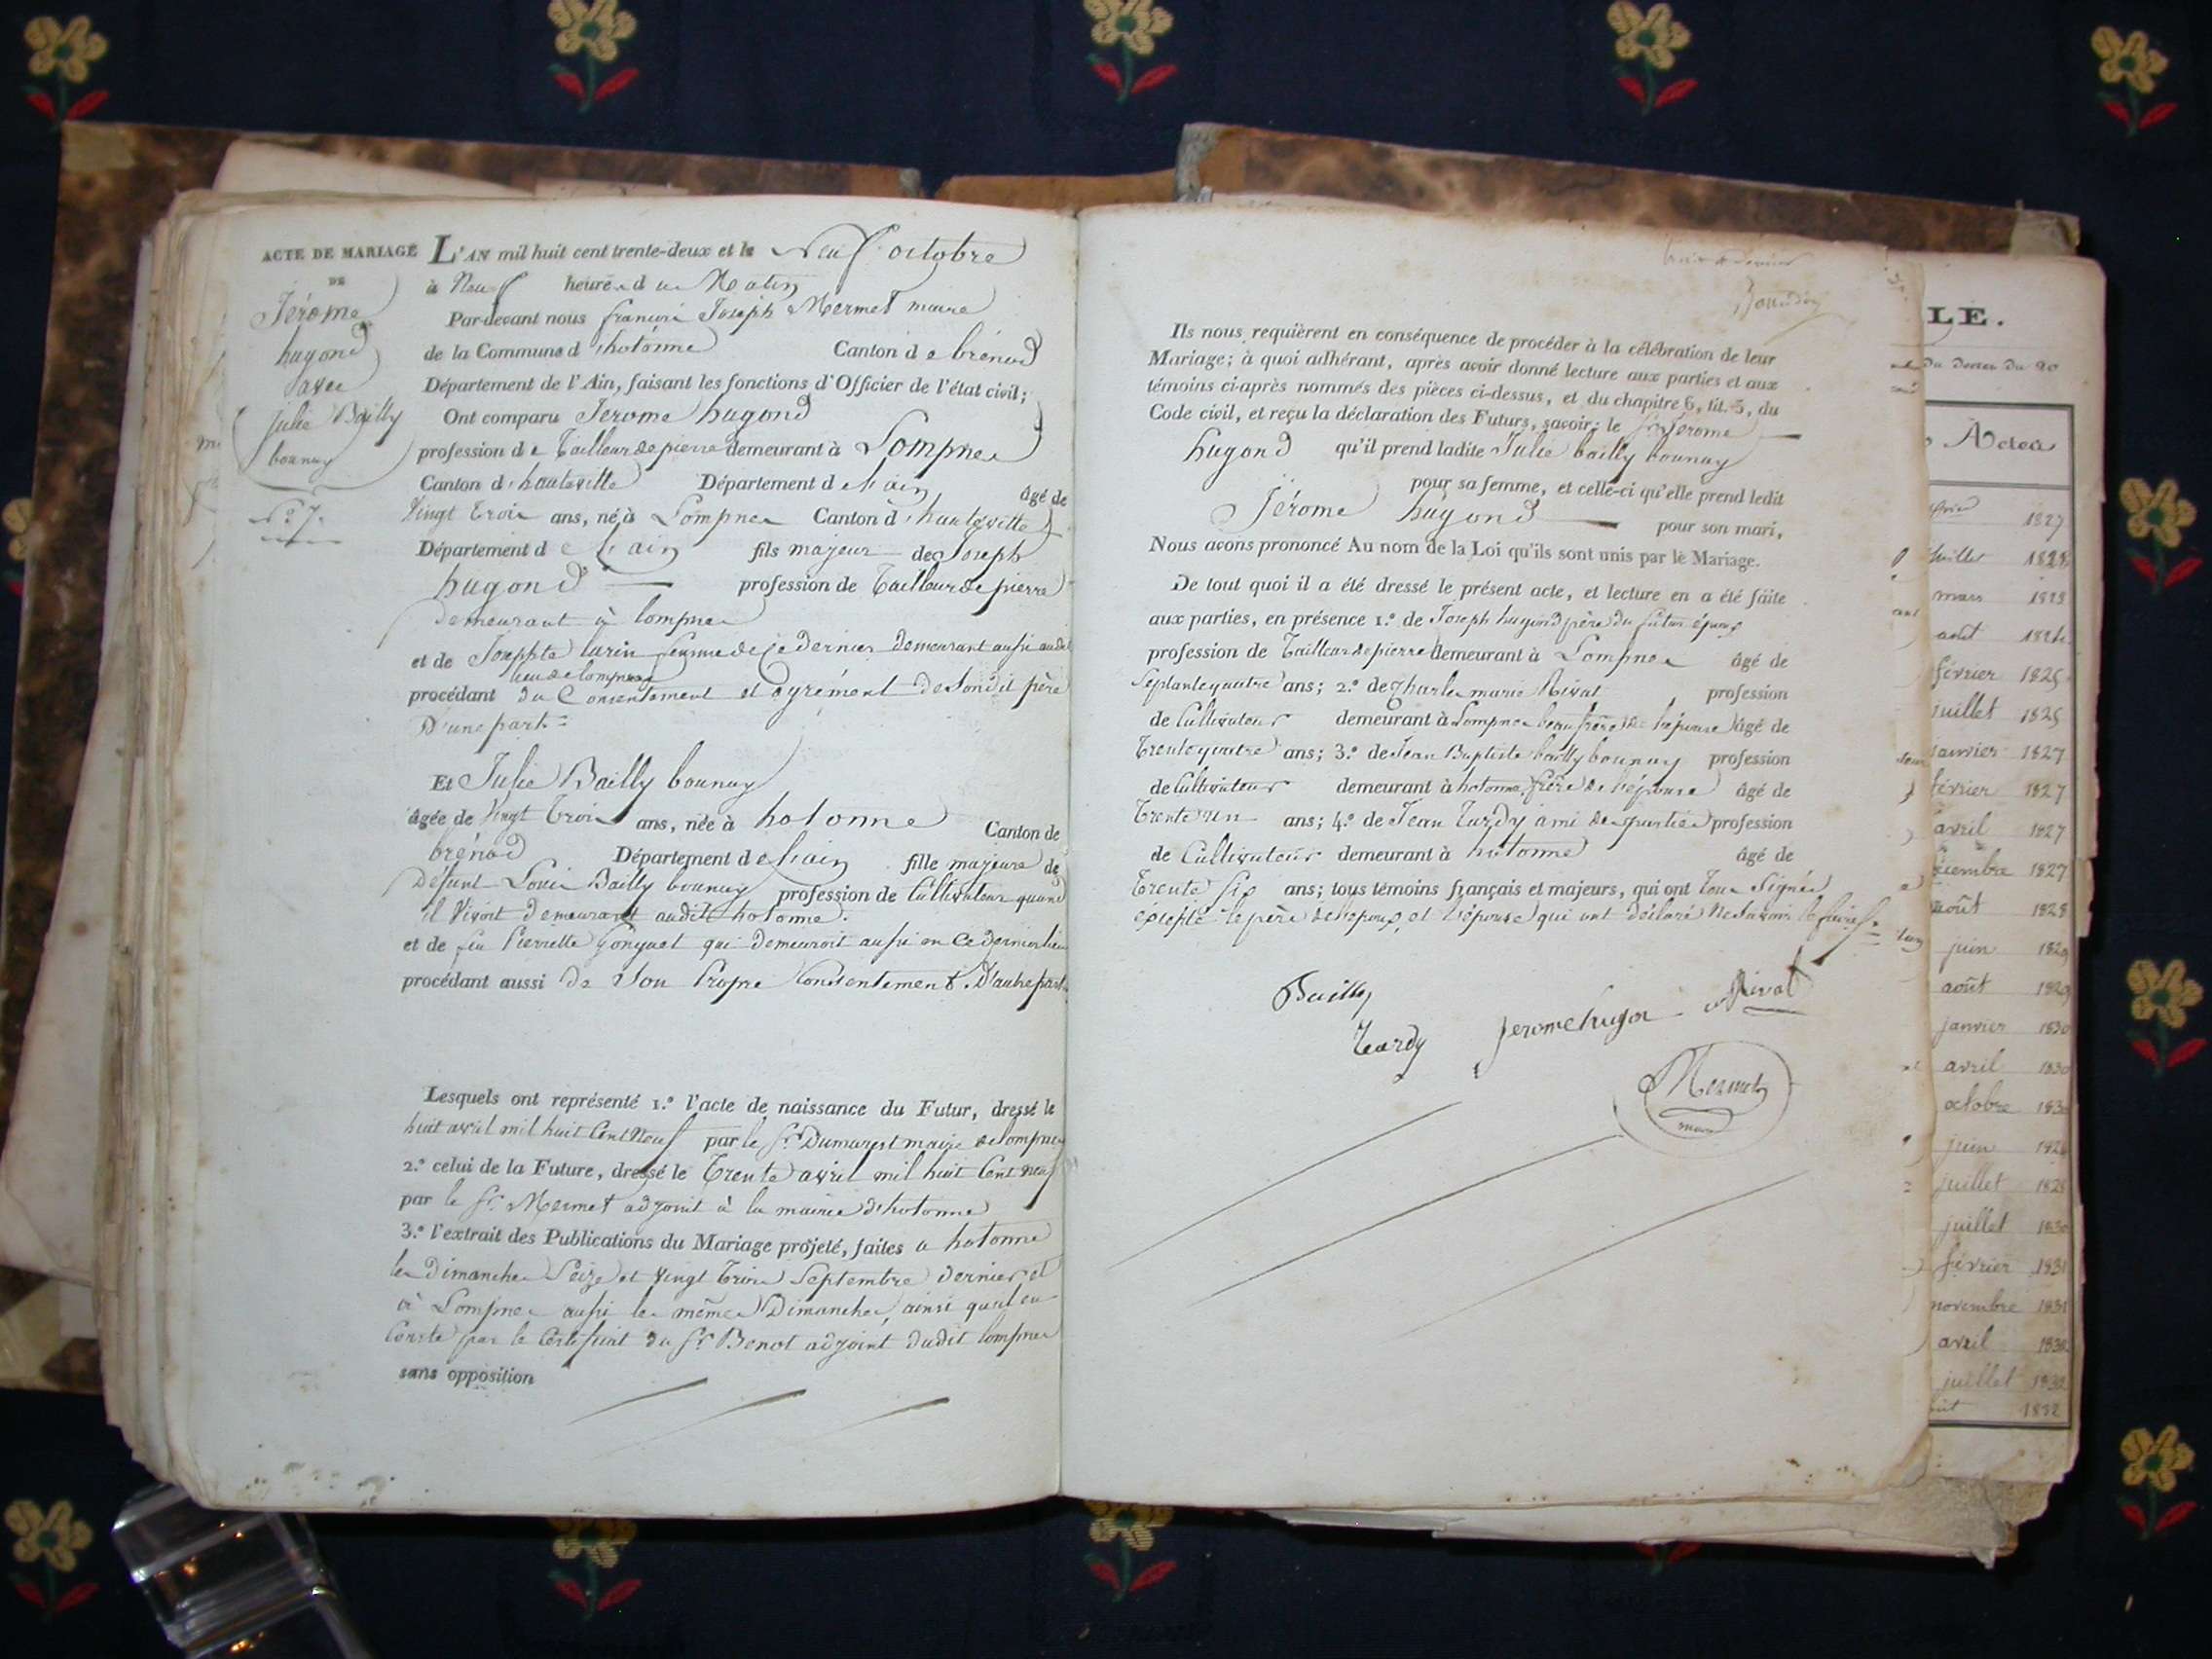 ACTE DE MARIAGE
DE
Jérome
hugond
avec
julie Bailly
bounay
N.º 7.
L'AN mil huit cent trente-deux et le Neuf octobre
à Neuf heures du Matin
Par-devant nous françois Joseph Mermet maire
de la Commune d'hotonne Canton de brénod
Département de l'Ain, faisant les fonctions d'Officier de l'état civil;
Ont comparu Jerome hugond
profession de Tailleur de pierre demeurant à Lompnes
Canton d'hauteville Département de l'ain âgé de
Vingt trois ans, né à Lompnes Canton d'hauteville
Département de l'ain fils majeur de Joseph
hugond profession de Tailleur de pierre
demeurant à lompnes
et de Josephte larin femme de ce dernier demeurant aussi audit
lieu de lompnes
procédant du Consentement et agrément de Sondit père
D'une part =
Et Julie Bailly bounay
âgée de Vingt trois ans, née à hotonne Canton de
brénod Département de l'ain fille majeure de
Défunt Louis Bailly bounay profession de Cultivateur quand
il Vivoit demeurant audit hotonne.
et de feu Pierrette Gonguet qui demeuroit aussi en ce dernier lieu
procédant aussi de Son Propre Consentement. D'autre part.
Lesquels ont représenté 1.º l'acte de naissance du Futur, dressé le
huit avril mil huit Cent Neuf par le Sr. Dumarest maire de lompnes
2.º celui de la Future, dressé le Trente avril mil huit Cent neuf
par le Sr. Mermet adjoint à la mairie d'hotonne
3.º l'extrait des Publications du Mariage projeté, faites a hotonne
les dimanches Seize et Vingt trois Septembre dernier et
à Lompnes aussi les mêmes Dimanches, ainsi qu'il en
Conste par le Certificat du Sr. Benot adjoint dudit lompnes
sans opposition
Ils nous requièrent en conséquence de procéder à la célébration de leur
Mariage; à quoi adhérant, après avoir donné lecture aux parties et aux
témoins ci-après nommés des pièces ci-dessus, et du chapitre 6, tit. 5, du
Code civil, et reçu la déclaration des Futurs, savoir: le Sr. Jérome
hugond qu'il prend ladite Julie bailly bounay
pour sa femme, et celle-ci qu'elle prend ledit
Jérome hugond pour son mari,
Nous avons prononcé Au nom de la Loi qu'ils sont unis par le Mariage.
De tout quoi il a été dressé le présent acte, et lecture en a été faite
aux parties, en présence 1.º de Joseph hugond père du futur époux
profession de Tailleur de pierre demeurant à Lompnes âgé de
Septante quatre ans; 2.º de Charles marie Rivat profession
de Cultivateur demeurant à Lompnes beau frère de l'épouse âgé de
Trente quatre ans; 3.º de Jean Baptiste bailly bounay profession
de Cultivateur demeurant à hotonne frère de l'épouse âgé de
Trente un ans; 4.º de Jean Tardy ami des parties profession
de Cultivateur demeurant à hotonne âgé de
Trente Six ans; tous témoins français et majeurs, qui ont tous Signés
éxcépté le père de l'epoux, et l'épouse qui ont déclaré ne Savoir le faire =
Bailly
Tardy jerome hugon Rivat
Mermet
maire
LE.
Actes
1827
juillet 1828
mars 1823
août 1824
février 1825
juillet 1825
janvier 1827
février 1827
avril 1827
décembre 1827
août 1828
juin 1829
août 1829
janvier 1830
avril 1830
octobre 1830
juin 1828
juillet 1828
juillet 1830
février 1831
novembre 1831
avril 1832
juillet 1832
1832